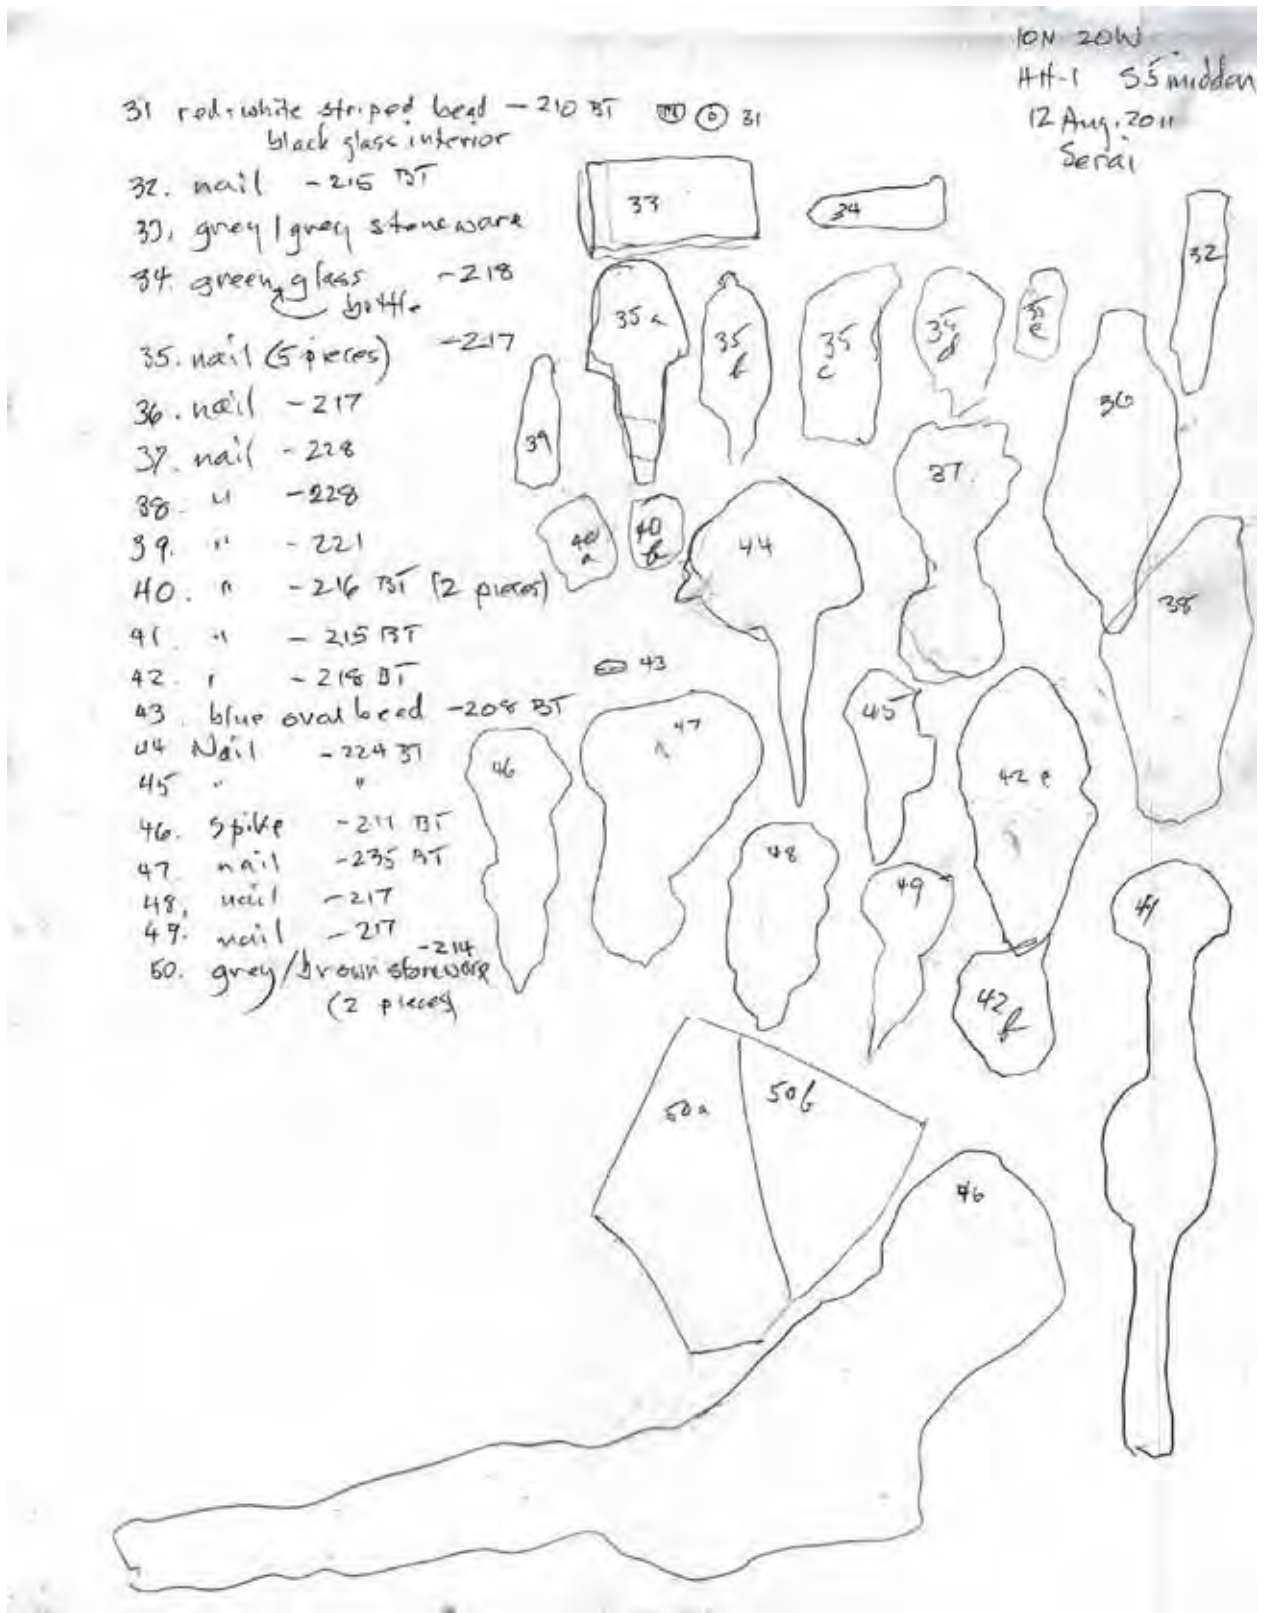 10N 20W
HH-1 S5 midden
12 Aug. 2011
Serai
31 red+white striped bead - 210 BT 31
black glass interior
32. nail - 215 BT
33. grey/grey stoneware
34. green glass - 218
bottle
35. nail (5 pieces) - 217
36. nail - 217
37. nail - 228
38. " - 228
39. " - 221
40. " - 216 BT (2 pieces)
41. " - 215 BT
42. " - 218 BT
43. blue oval bead - 208 BT
44 Nail - 224 BT
45 " "
46. spike - 211 BT
47. nail - 235 BT
48. nail - 217
49. nail - 217
50. grey/brown stoneware - 214
(2 pieces)
33
34
32
35a
35b
35c
35d
35e
36
39
37
40a
40b
44
38
43
47
45
46
42e
48
49
41
42f
50a
50b
46